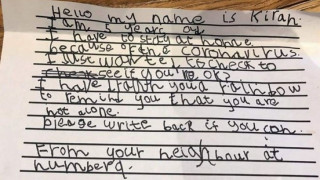 Hello my name is Kirah.
I am 5 years old
I have to stay at home
because of the coronavirus.
I just wanted to check to
see if you're OK?
I have you a rainbow
to remind you that you are
not alone.
please write back if you can.
From your neighbour at
number 9.